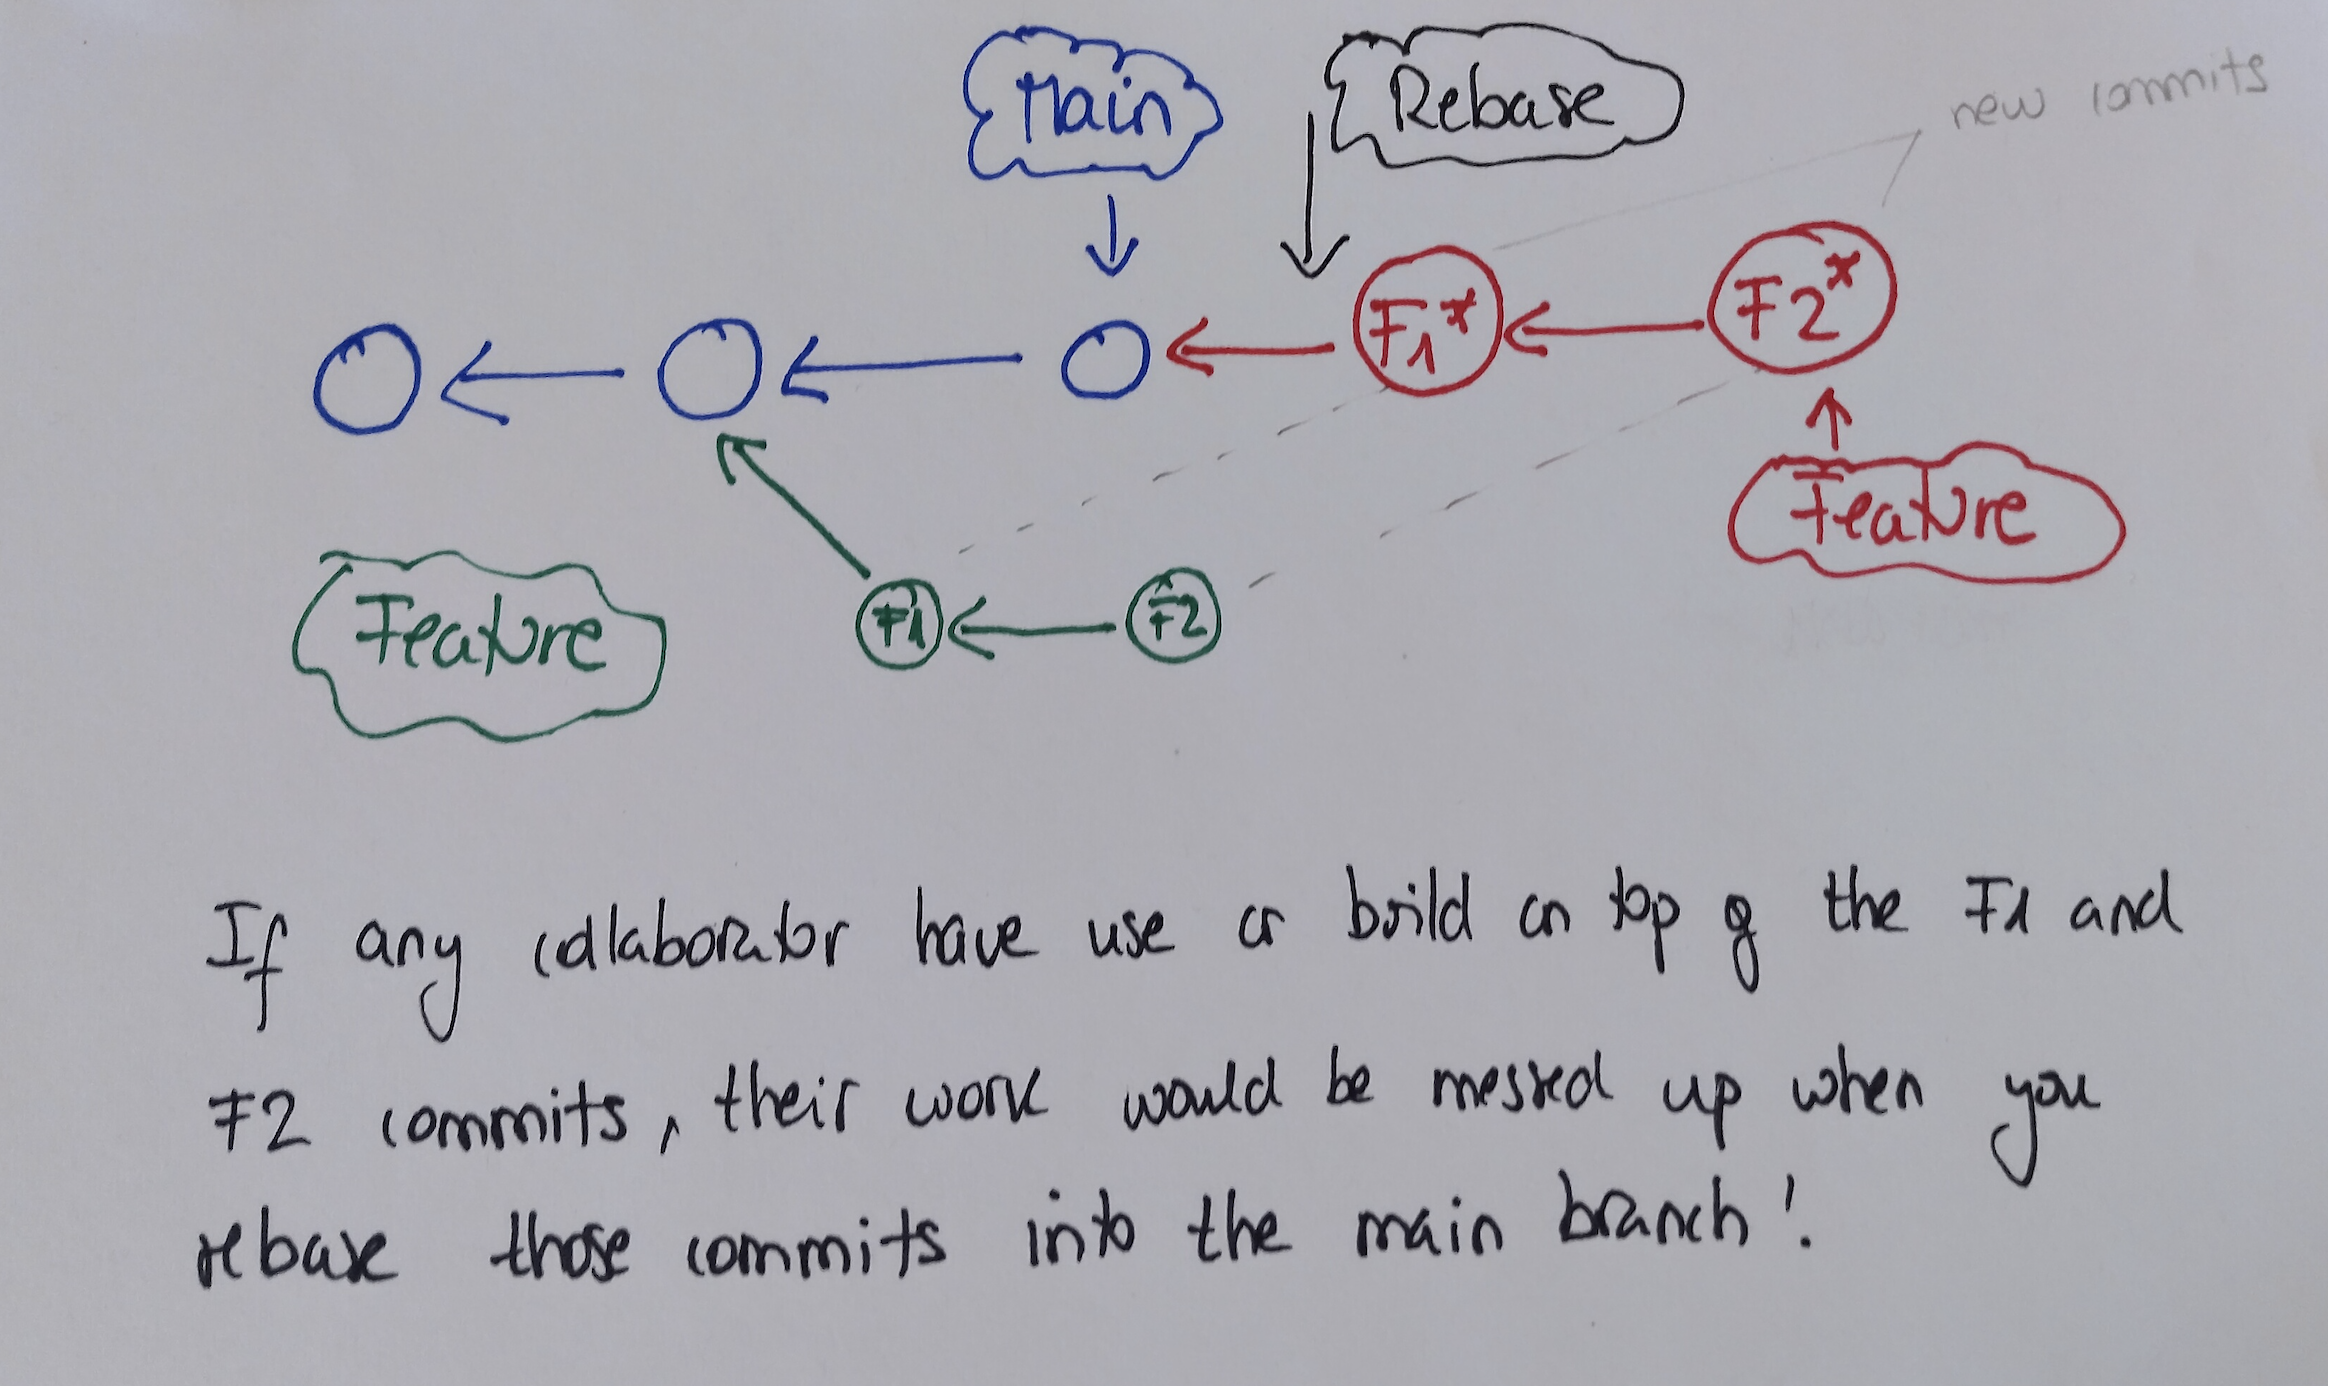 Main
Rebase
new commits
F1*
F2*
Feature
Feature
F1
F2
If any collaborator have use or build on top of the F1 and
F2 commits, their work would be messed up when you
rebase those commits into the main branch!